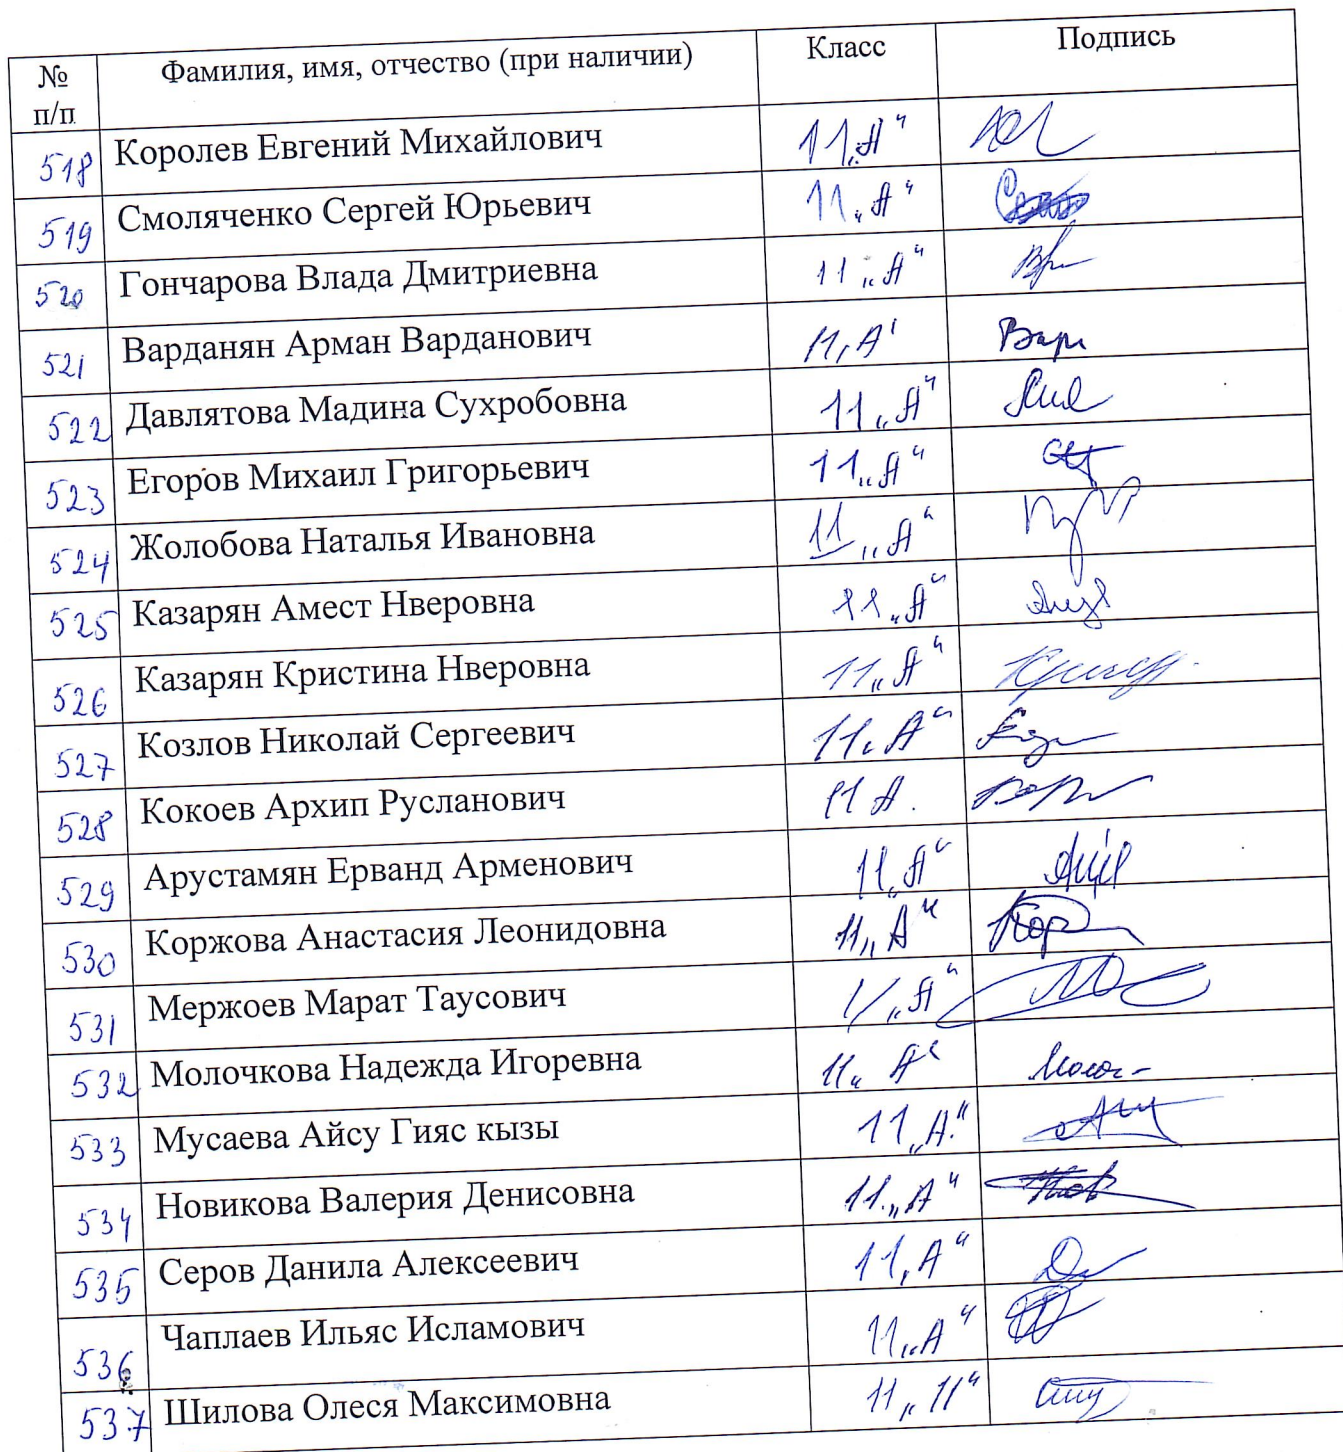 № п/п Фамилия, имя, отчество (при наличии) Класс Подпись
518 Королев Евгений Михайлович 11 „А“
519 Смоляченко Сергей Юрьевич 11 „А“
520 Гончарова Влада Дмитриевна 11 „А“
521 Варданян Арман Варданович 11,А' Вари
522 Давлятова Мадина Сухробовна 11 „А“
523 Егоров Михаил Григорьевич 11 „А“
524 Жолобова Наталья Ивановна 11 „А“
525 Казарян Амест Нверовна 11 „А“
526 Казарян Кристина Нверовна 11 „А“
527 Козлов Николай Сергеевич 11 „А“
528 Кокоев Архип Русланович 11 А.
529 Арустамян Ерванд Арменович 11 „А“
530 Коржова Анастасия Леонидовна 11 „А“ Кор
531 Мержоев Марат Таусович 11 „А“
532 Молочкова Надежда Игоревна 11 „А“ Молоч-
533 Мусаева Айсу Гияс кызы 11 „А“
534 Новикова Валерия Денисовна 11 „А“ Нов
535 Серов Данила Алексеевич 11 „А“
536 Чаплаев Ильяс Исламович 11 „А“
537 Шилова Олеся Максимовна 11 „11“